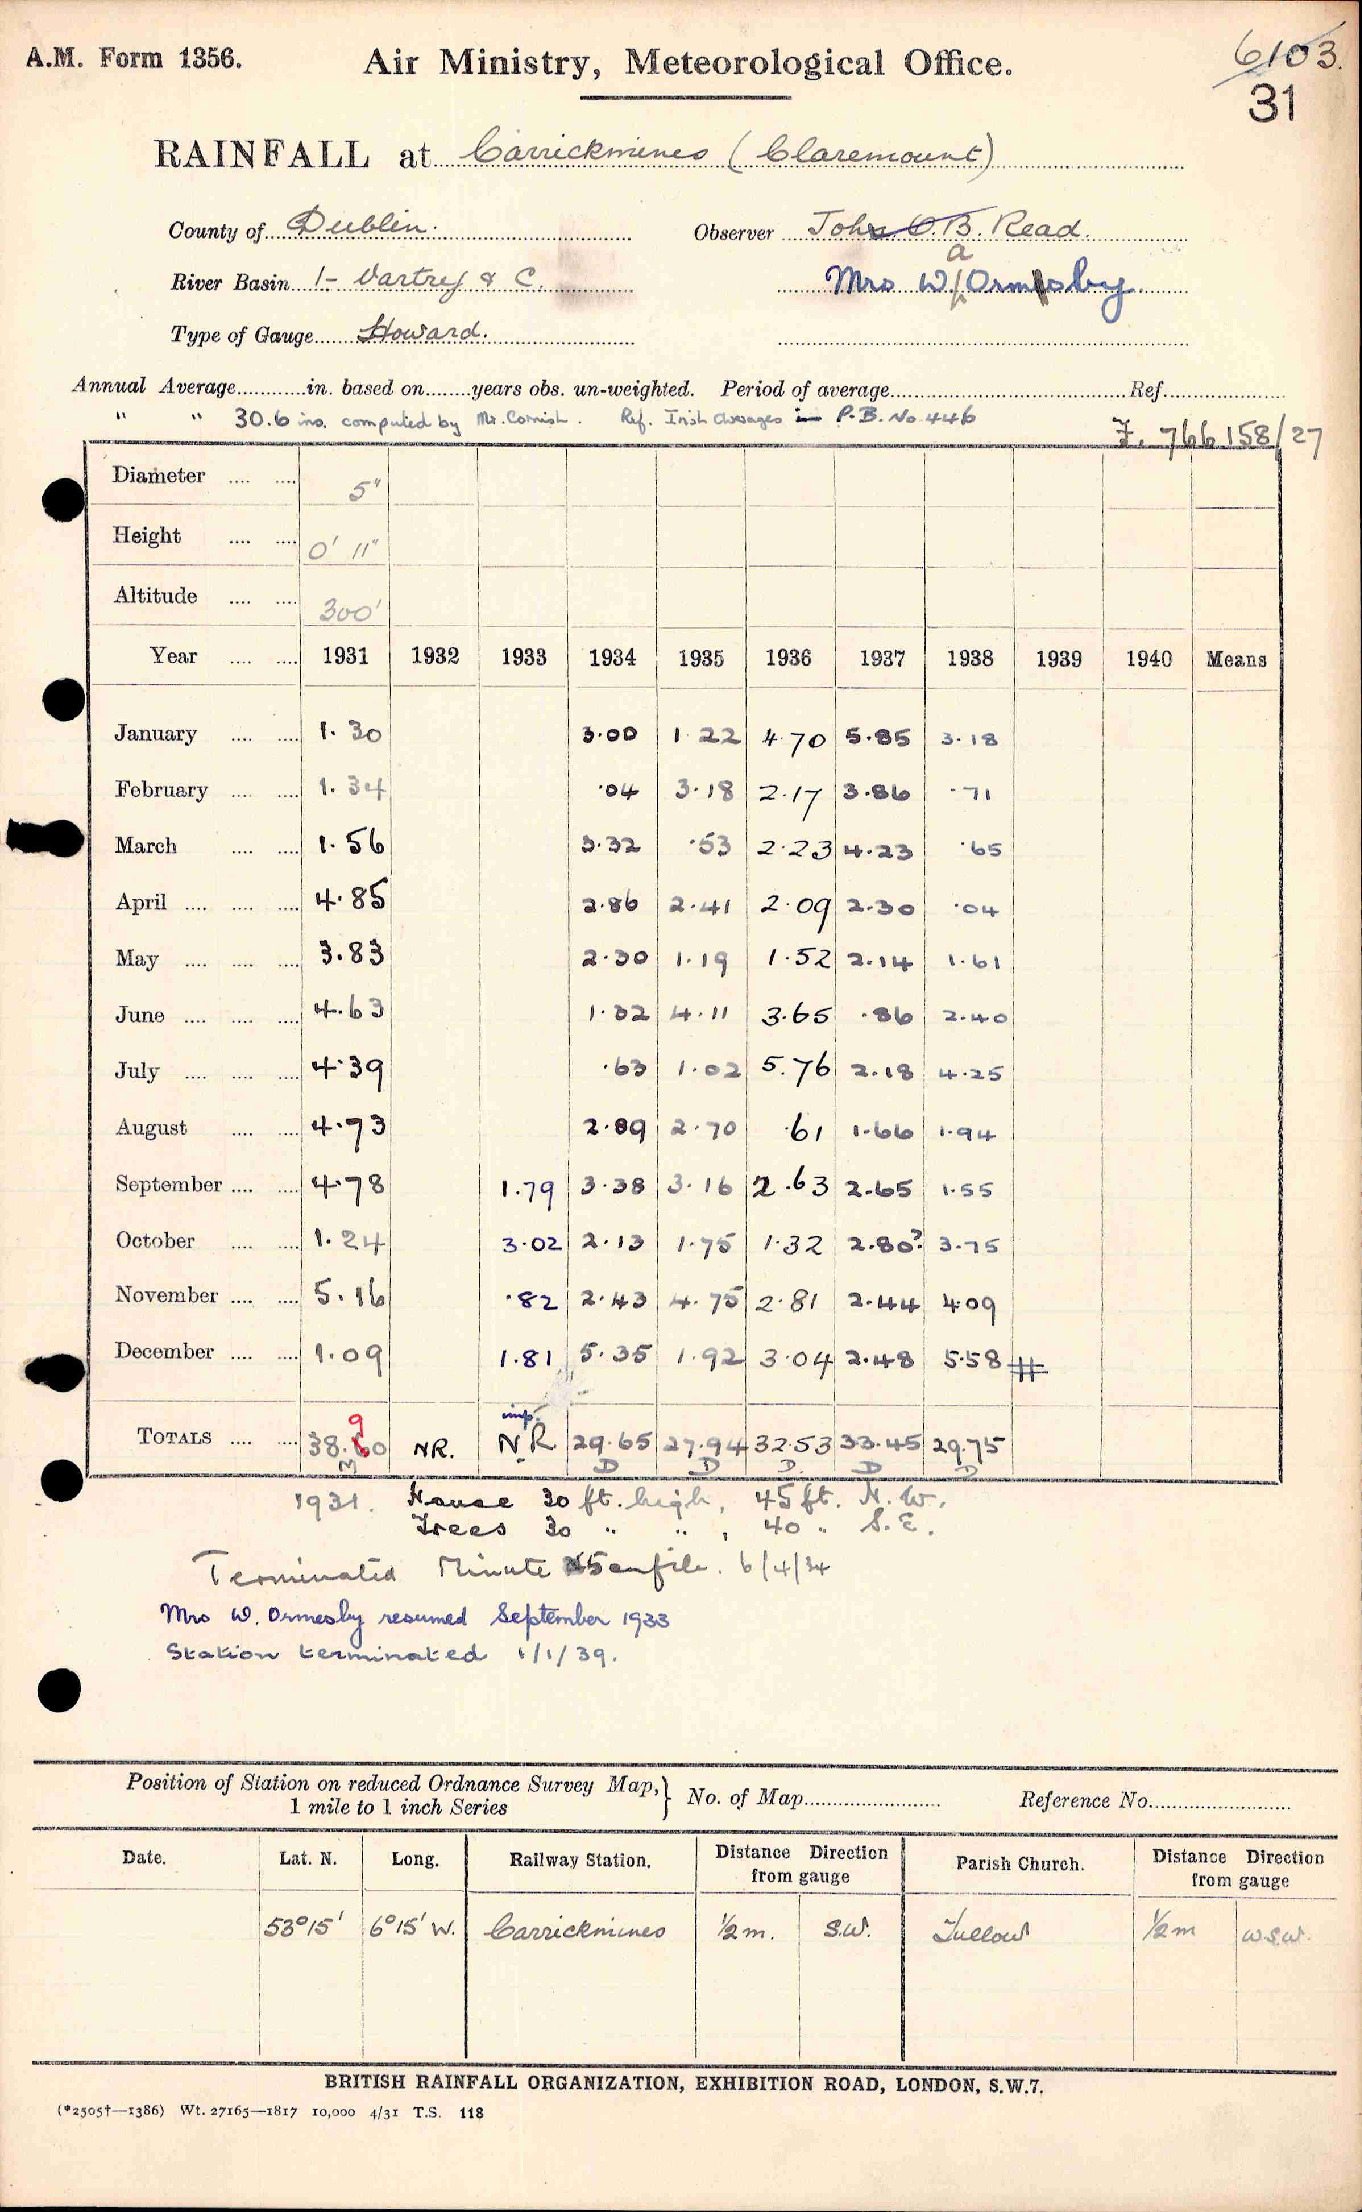 A.M. Form 1356.
Air Ministry, Meteorological Office.
6103.
31
RAINFALL at Carrickmines (Claremount)
County of Dublin.
Observer John O.B. Read.
River Basin 1- Vartry & C.
Mrs W. Ormesby.
Type of Gauge Howard.
Annual Average in. based on years obs. un-weighted. Period of average Ref.
" " 30.6 ins. computed by Mr. Cornish. Ref. Irish Averages in P.B. No 446
F. 766158/27
Diameter .... .... 5"
Height .... .... 0' 11"
Altitude .... .... 300'
Year .... .... 1931 1932 1933 1934 1935 1936 1937 1938 1939 1940 Means
January .... .... 1.30 3.00 1.22 4.70 5.85 3.18
February .... .... 1.34 .04 3.18 2.17 3.86 .71
March .... .... 1.56 3.32 .53 2.23 4.23 .65
April .... .... .... 4.85 2.86 2.41 2.09 2.30 .04
May .... .... .... 3.83 2.30 1.19 1.52 2.14 1.61
June .... .... .... 4.63 1.32 4.11 3.65 .86 2.40
July .... .... .... 4.39 .63 1.02 5.76 2.18 4.25
August .... .... 4.73 2.89 2.70 .61 1.66 1.94
September .... .... 4.78 1.79 3.38 3.16 2.63 2.65 1.55
October .... .... 1.24 3.02 2.13 1.75 1.32 2.80? 3.75
November .... .... 5.16 .82 2.43 4.75 2.81 2.44 4.09
December .... .... 1.09 1.81 5.35 1.92 3.04 2.48 5.58
imp.
9
TOTALS .... .... 38.60 NR. NR 29.65 27.94 32.53 33.45 29.75
M D D D. D D
1931. House 30 ft. high, 45 ft. N.W.
Trees 30 " " , 40 " S.E.
Terminated Minute 45 on file. 6/4/34
Mrs W. Ormesby resumed September 1933
Station terminated 1/1/39.
Position of Station on reduced Ordnance Survey Map, 1 mile to 1 inch Series } No. of Map Reference No.
Date. Lat. N. Long. Railway Station. Distance Direction from gauge Parish Church. Distance Direction from gauge
53°15' 6°15' W. Carrickmines ½ m. S.W. Tullow ½ m W.S.W.
BRITISH RAINFALL ORGANIZATION, EXHIBITION ROAD, LONDON, S.W.7.
(*2505†—1386) Wt. 27165—1817 10,000 4/31 T.S. 118